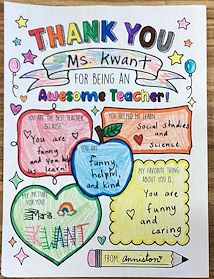 THANK YOU
Ms. Kwant
FOR BEING AN
Awesome Teacher!
YOU ARE THE BEST TEACHER
BECAUSE
You are
funny
and you
us learn!
YOU HELPED ME LEARN
Social studies
and
science
YOU ARE
funny,
helpful,
and kind
MY FAVORITE THING
ABOUT YOU IS
You are
funny
and
caring
MY PICTURE FOR
YOU
Ms.
KWANT
FROM: Anniston